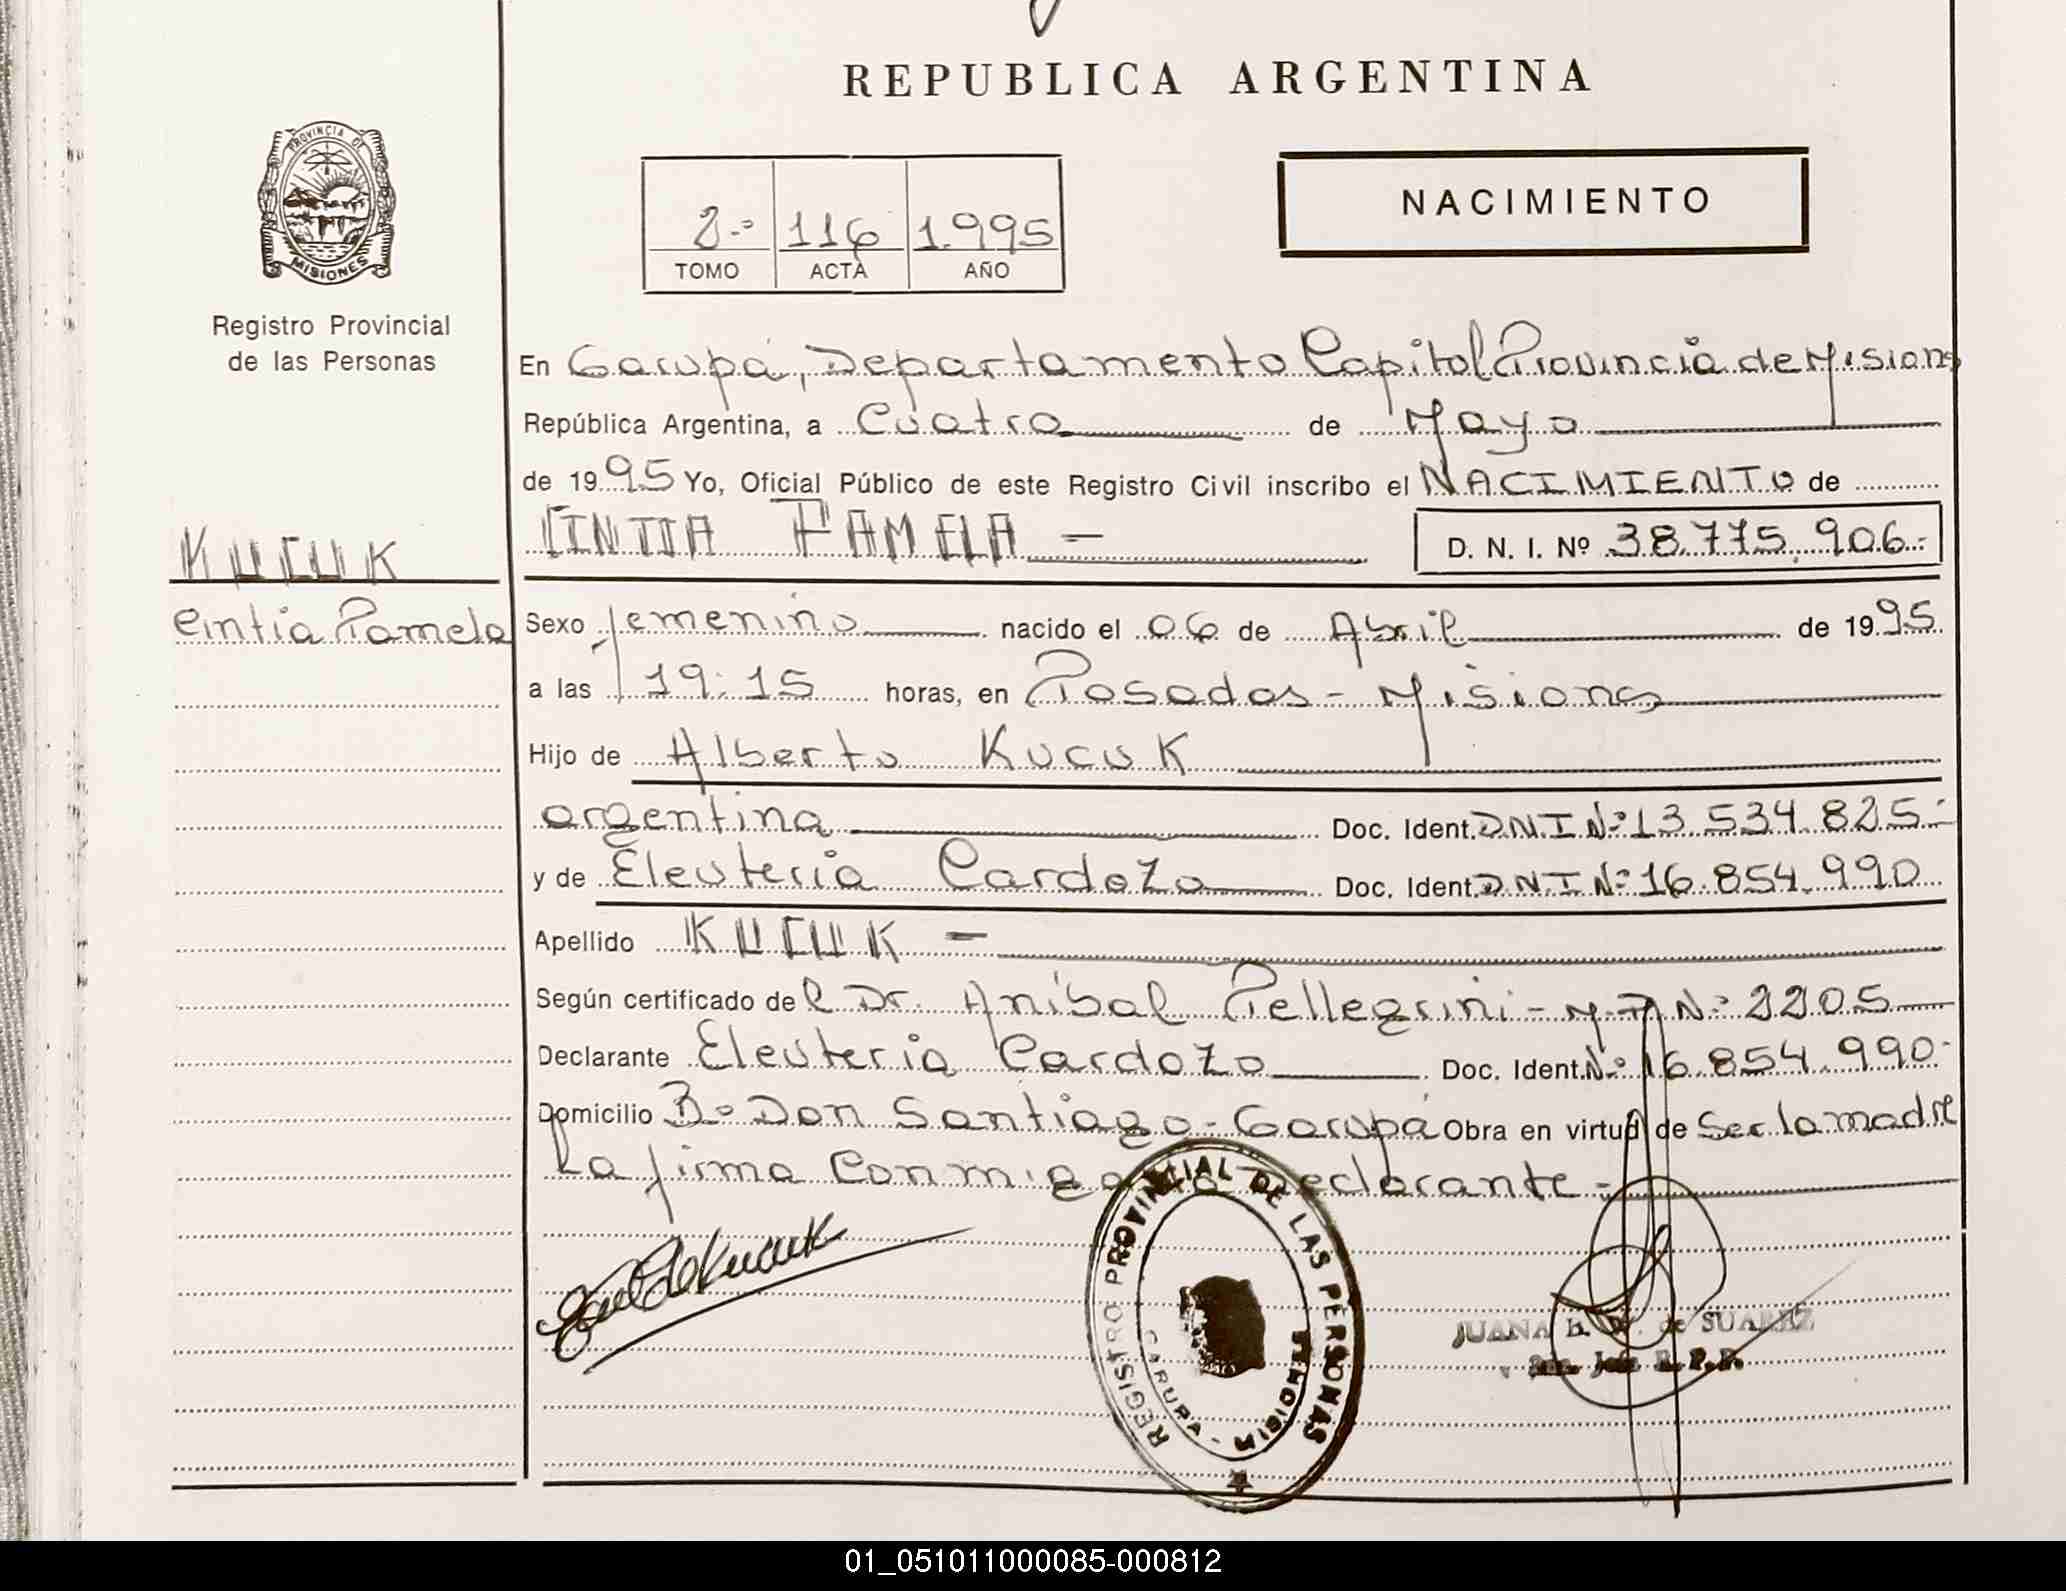 REPUBLICA ARGENTINA
PROVINCIA DE
MISIONES
Registro Provincial
de las Personas
2º 116 1.995
TOMO ACTA AÑO
NACIMIENTO
En Garupá, Departamento Capital Provincia de Misiones
República Argentina, a Cuatro de Mayo
de 1995 Yo, Oficial Público de este Registro Civil inscribo el NACIMIENTO de
CINTIA PAMELA - D. N. I. Nº 38.775.906.-
KUCUK
Cintia Pamela
Sexo femenino nacido el 06 de Abril de 1995
a las 19:15 horas, en Posadas - Misiones
Hijo de Alberto Kucuk
argentina Doc. Ident. DNI Nº 13.534.825.-
y de Eleuteria Cardozo Doc. Ident. DNI Nº 16.854.990
Apellido KUCUK -
Según certificado del Dr. Aníbal Pellegrini - M.P. Nº 2205
Declarante Eleuteria Cardozo Doc. Ident. Nº 16.854.990-
Domicilio Bº Don Santiago - Garupá Obra en virtud de Ser la madre
La firma Conmigo la Declarante -
de Kucuk
REGISTRO PROVINCIAL DE LAS PERSONAS
GARUPA - MISIONES
JUANA de SUAREZ
R. P. P.
01_051011000085-000812